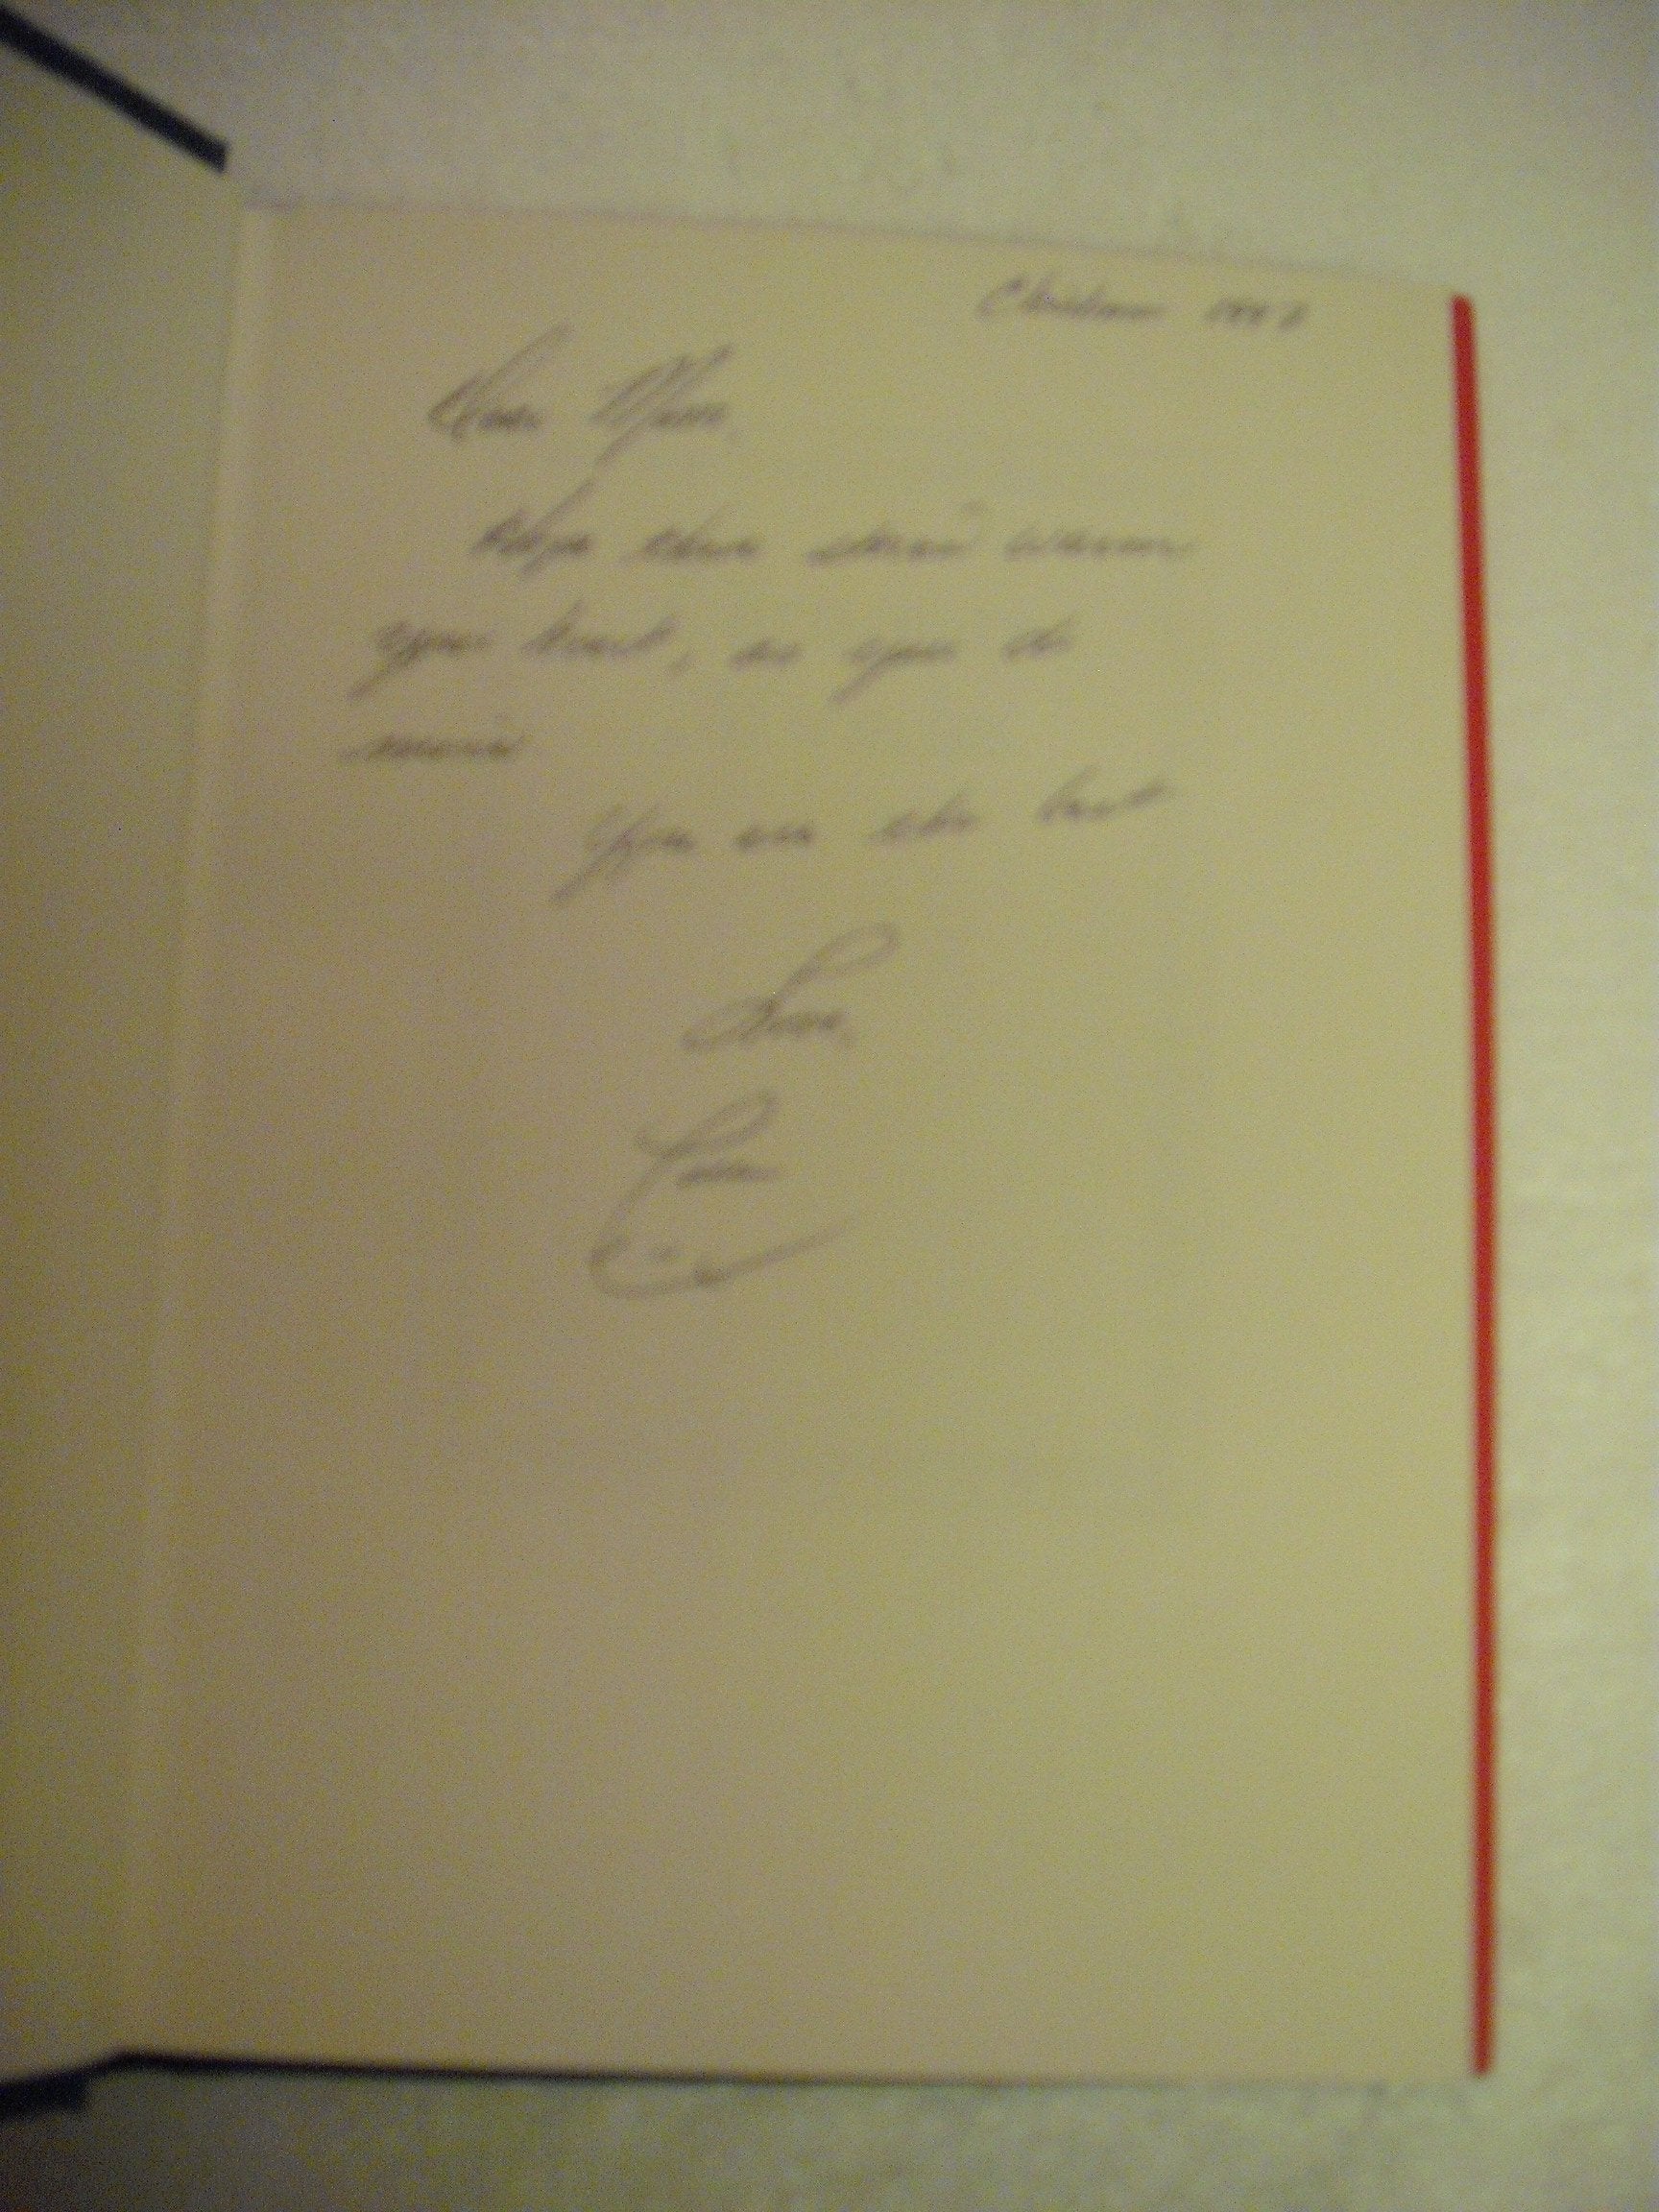 Christmas
Dear
Hope these stories warm
your heart, as you do
mine
You are the best
Love,